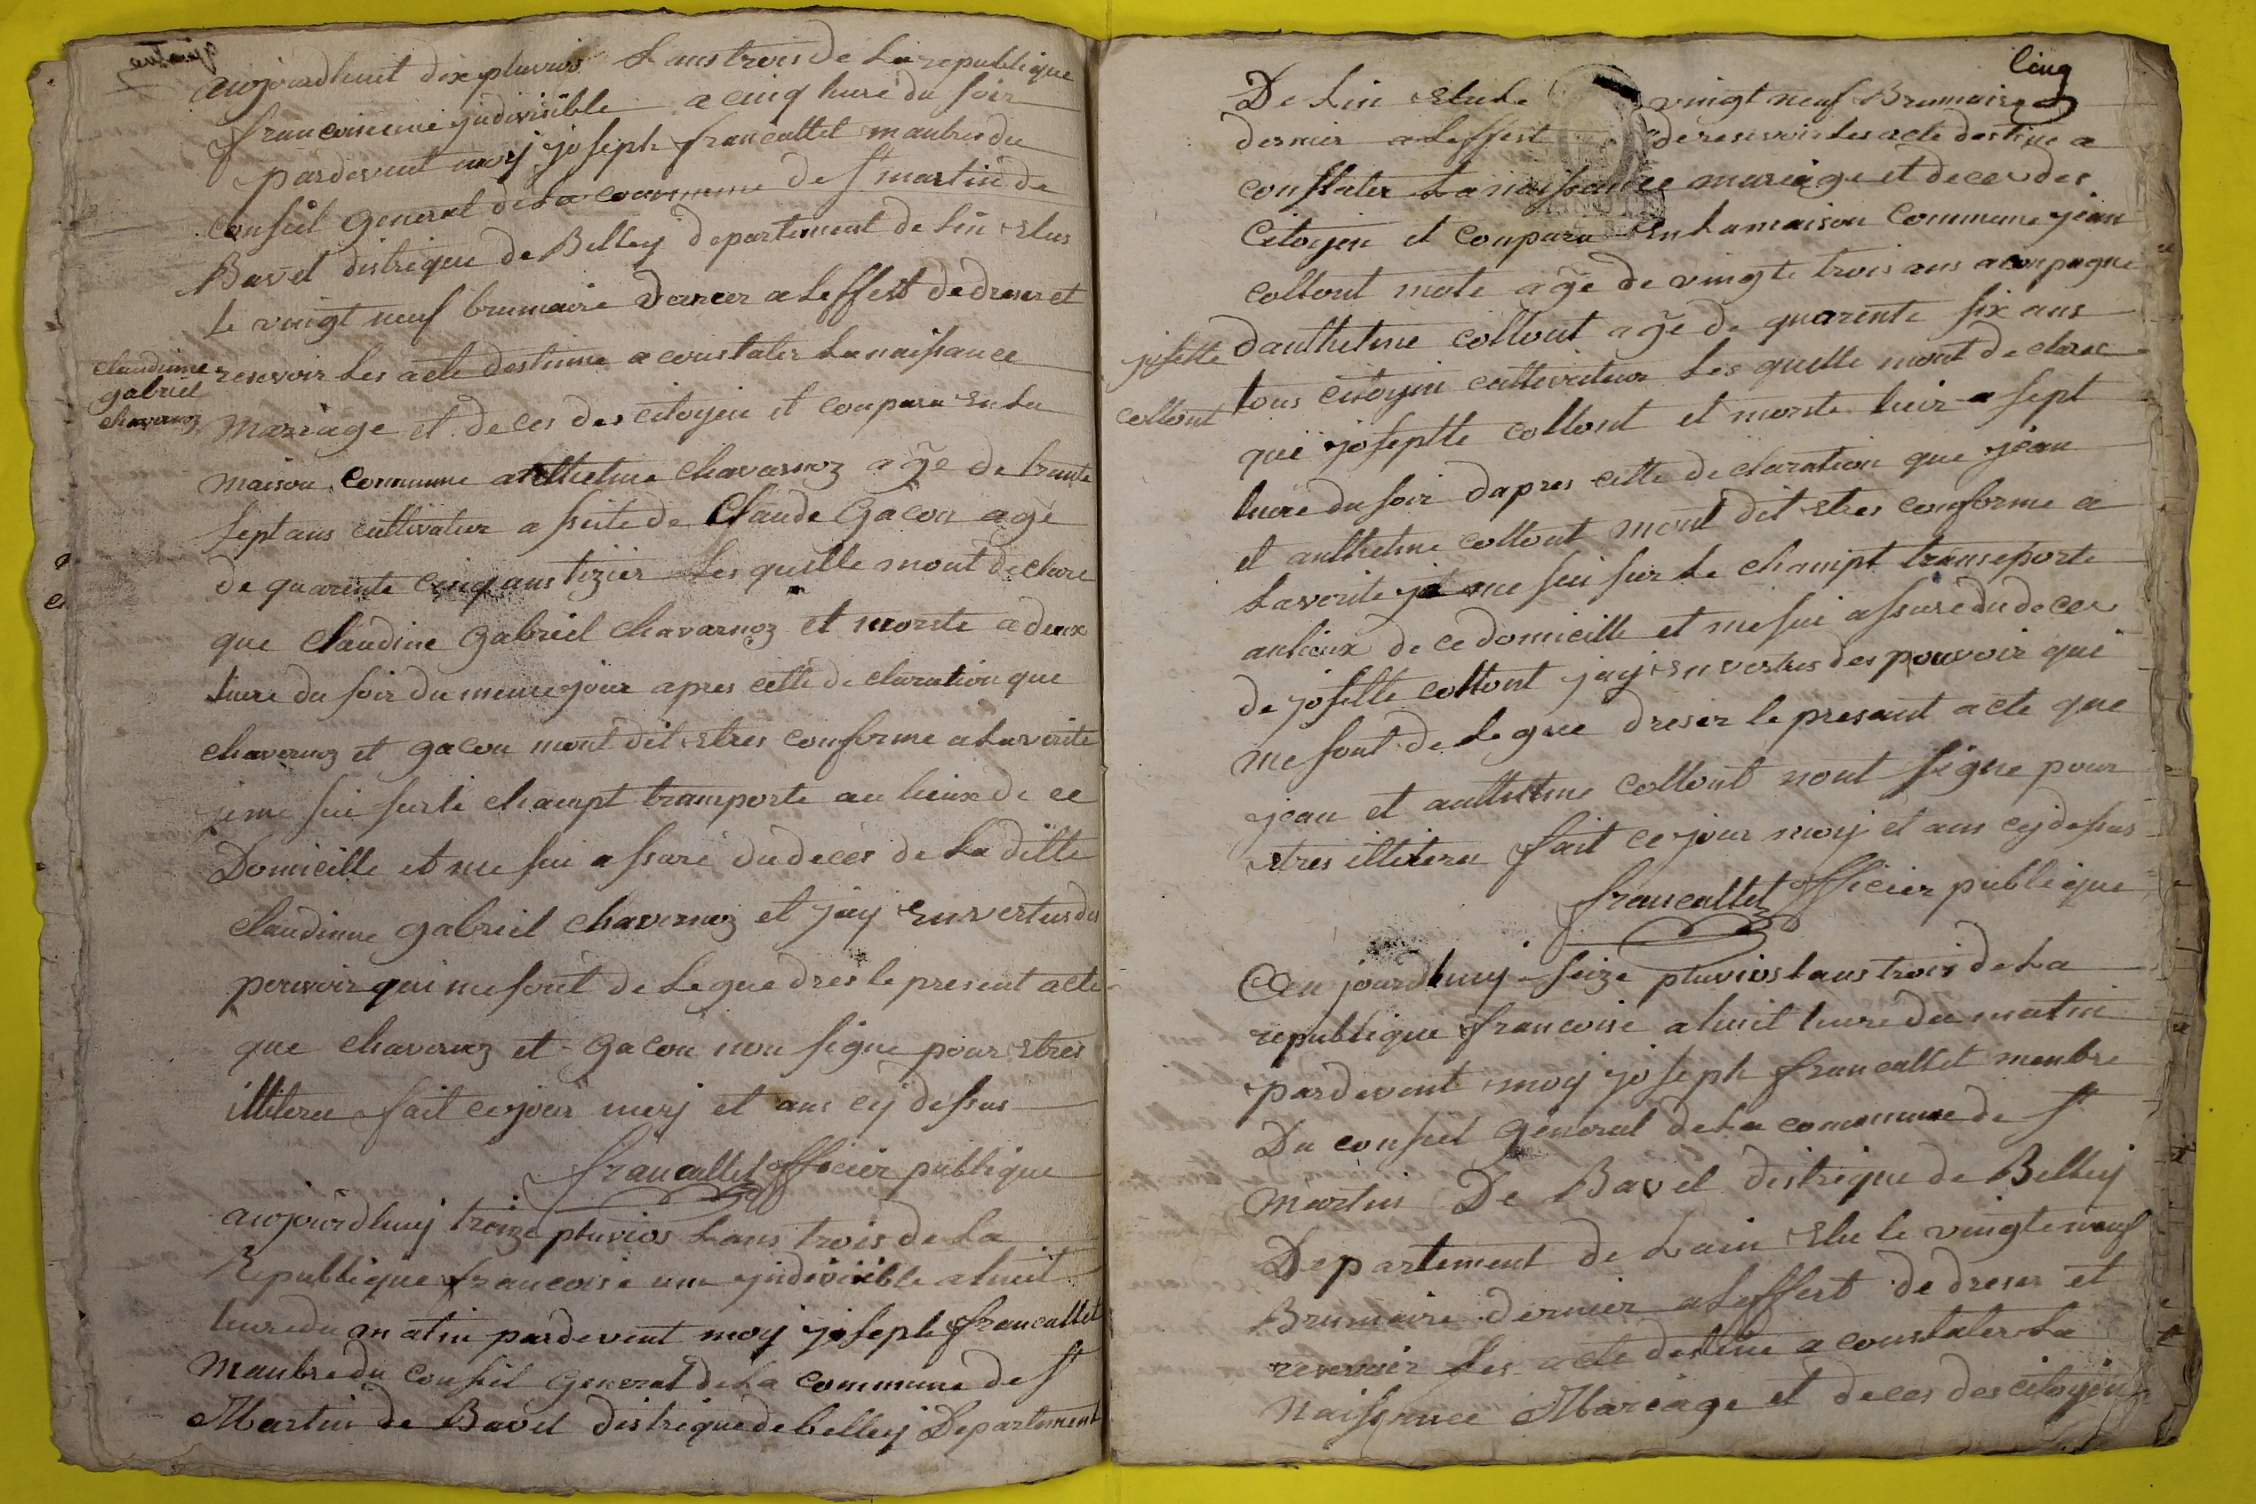 aujourdhuit dix pluvios Lans trois de La republique
francoise une jndivisible a cinq hure du soir
pardevent moy joseph francallet manbre du
conseil general de La commune de St martin de
Bavet distrique de Belley departement de Lin Elus
le vingt neuf brumaire dernier a Leffest de dreser et
resevoir Les acte destinne a constater La naissance
claudinne
gabriel
chavernoz
Mariage et deces des citoyein et conparu En La
maison commune anthelme chavarnoz age de trante
sept ans cultivateur asisté de Claude Gacon age
de quarente cinq ans tizier Les quelle mont declare
que claudine gabriel chavarnoz et morte a deux
hure du soir du meme jour apres cette declaration que
chavernoz et gacon mont dit Etres conforme a La verite
je me sui sur le champt transporte au lieux de ce
Domicille et me sui assuré du deces de La ditte
claudinne gabriel chavernoz et jay En vertus des
pouvoir qui me sont delegue dres le present acte
que chavernoz et gacon non signe pour Etres
illiteree fait ce jour moy et ans cy dessus
francallet officier publique
aujourdhuy treize pluvios Lans trois de La
Republique francoise une jndivisible a huit
hure du matin pardevent moy joseph francallet
Manbre du conseil general de La commune de St
Martin de Bavet distrique de belley Departement
cinq
De Lin Elu Le vingt neuf Brumaire
dernier a Leffest de resevoir Les acte destine a
constater La naissance mariage et deces des
Citoyen et conparu En La maison commune jean
coltont age de vingte trois ans aconpagne
danthelme coltont age de quarente six ans
josette
coltont
tous citoyin cultivateur Les quelle mont declare
que josephte coltont et morte hier a sept
hure du soir dapres cette declaration que jean
et anthelme coltont mont dit Etres conforme a
La verite je me sui sur Le champt transporte
au lieux de ce domicille et me sui assure du deces
de josette coltont jay En vertus des pouvoir qui
me sont delegue dreser le presant acte que
jean et anthelme coltont nont signe pour
Etres illiteree fait ce jour moy et ans cy dessus
francallet officier publique
Au jourdhuy seize pluvios Lans trois de La
republique francoise a huit hure du matin
pardevent moy joseph francallet menbre
Du conseil general de La commune de St
martin De Bavet distrique de Belley
Departement de Lain Elu le vingte neuf
Brumaire dernier a Leffest de dreser et
resevoir Les acte destine a constater La
Naissance Mariage et deces des citoyen